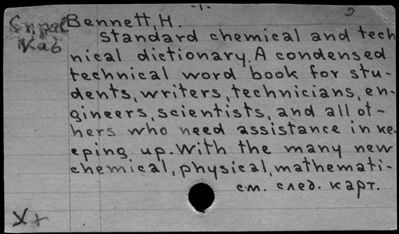 Bennett, H.
Справ
Каб
Standard chemical and tech
nical dictionary. A condensed
technical word book for stu-
dents, writers, technicians, en-
gineers, scientists, and all ot-
hers who need assistance in ke-
eping up. With the many new
chemical, physical, mathemati-
см. след. карт.